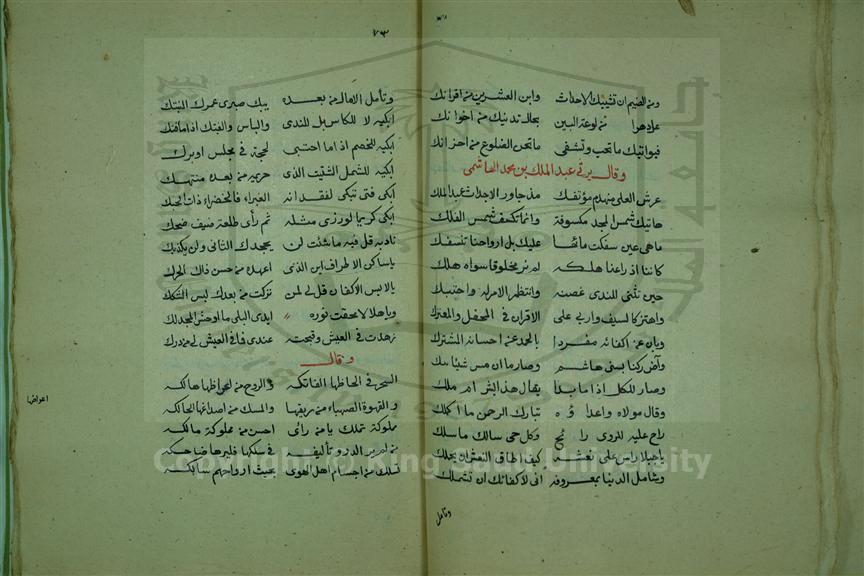 ٧٣
ومن الضيم ان تشيبك الاحداث وابن العشرين من اقرانك
نم لوعة البين بحال تدنيك من اخوانك
فيواتيك ما تحب وتشفى ما تجن الضلوع من احزانك
وقال يرثي عبد الملك بن محمد الهاشمى
عرش العلى منهدم مؤتفك مذ جاور الاجداث عبد الملك
هاتيك شمس المجد مكسوفة وانما تكسف شمس الفلك
ما هي عين سفكت مائها عليك بل ارواحنا تنسفك
كاننا اذ راعنا هلكه لم نر مخلوقا سواه هلك
حين تثنى للندى غصنه وانتظم الامر له واحتبك
واهتز كالسيف واربى على الاقران في المحفل والمعترك
وبان عن اكفائه مفردا بالحمد عن احسانه المشترك
وآض ركنا بنى هاشم وصار ما ان مس شيئا سك
وصار للكل اذا ما بدا يقال هذا بشر ام ملك
وقال مولاه واعداؤه تبارك الرحمن ما اكملك
راح عليه للردى رائح وكل حى سالك ما سلك
يا جبلا راس على نعشه كيف اطاق النعش ان يحملك
ويا شامل الدنيا بمعروفه انى لاكفانك ان تشملك
وتامل
وتأمل الاهال من بعده يبك صبرى عمرك المنتك
ابكيه لا للكاس بل للندى والباس والفتك اذا ما فتك
ابكيه للخصم اذا ما احتبى لحجة في مجلس او برك
ابكيه للشمل الشتيت الذى حريمه من بعده منتهك
ابكى فتى تبكى لفقدانه الغبراء فالخضراء ذات الحبك
ابكى كريما لو رزى مثله ثم رأى طلعة ضيف ضحك
ناد به قل فيه ما شئت لن يجحدك الثانى ولن يكذبك
يا ساكن الاطراف اين الذى اعهده من حسن ذاك الحرك
يا لابس الاكفان قل لي لمن تركت من بعدك لبس الشكك
ويا هلالا محقت نوره ايدى البلى ما اوحش المجد لك
زهدت في العيش وقبحته عندى فما في العيش لي من درك
وقال
السحر في الحاظها الفاتكه والروح من اعراضها هالكه
اعراضها
والقهوة الصهباء من ريقها والمسك من اصداغها الحالكه
مملوكة تملك يا من رأى احسن من مملوكة مالكه
من لم ير الدر وتأليفه في سلكها فليرها ضاحكه
تسلك من اجسام اهل الهوى بحيث ارواحهم سالكه
Copyright © King Saud University
جامعة الملك سعود